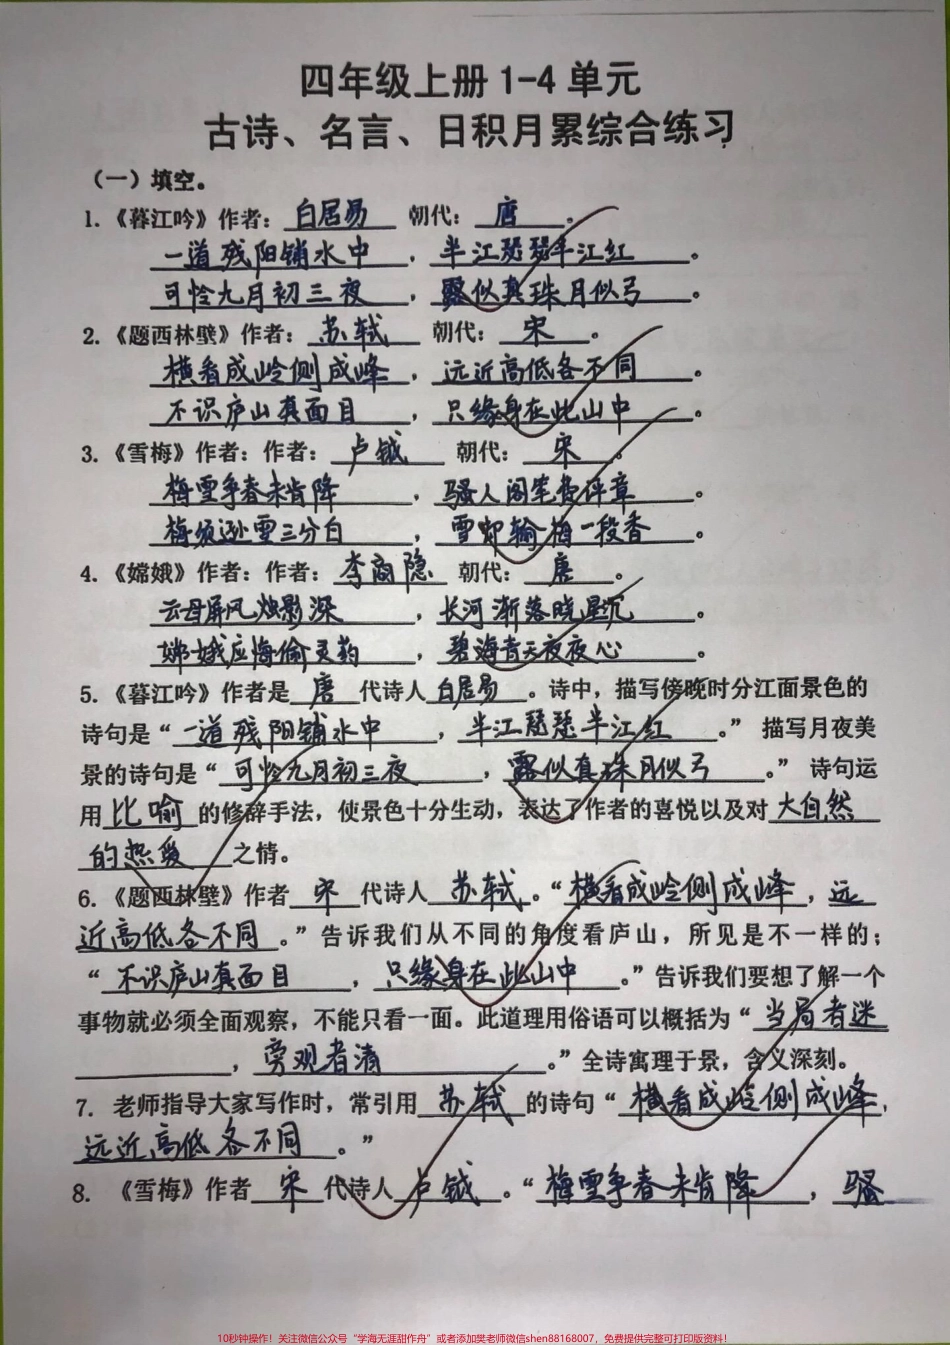 四年级上册1-4单元
古诗、名言、日积月累综合练习
（一）填空。
1.《暮江吟》作者：白居易 朝代：唐。
一道残阳铺水中，半江瑟瑟半江红。
可怜九月初三夜，露似真珠月似弓。
2.《题西林壁》作者：苏轼 朝代：宋。
横看成岭侧成峰，远近高低各不同。
不识庐山真面目，只缘身在此山中。
3.《雪梅》作者：作者：卢钺 朝代：宋。
梅雪争春未肯降，骚人阁笔费评章。
梅须逊雪三分白，雪却输梅一段香。
4.《嫦娥》作者：作者：李商隐 朝代：唐。
云母屏风烛影深，长河渐落晓星沉。
嫦娥应悔偷灵药，碧海青天夜夜心。
5.《暮江吟》作者是唐代诗人白居易。诗中，描写傍晚时分江面景色的
诗句是“一道残阳铺水中，半江瑟瑟半江红。” 描写月夜美
景的诗句是“可怜九月初三夜，露似真珠月似弓。” 诗句运
用比喻的修辞手法，使景色十分生动，表达了作者的喜悦以及对大自然
的热爱之情。
6.《题西林壁》作者宋代诗人苏轼。“横看成岭侧成峰，远
近高低各不同。”告诉我们从不同的角度看庐山，所见是不一样的；
“不识庐山真面目，只缘身在此山中。”告诉我们要想了解一个
事物就必须全面观察，不能只看一面。此道理用俗语可以概括为“当局者迷
，旁观者清。”全诗寓理于景，含义深刻。
7. 老师指导大家写作时，常引用苏轼的诗句“横看成岭侧成峰，
远近高低各不同。”
8. 《雪梅》作者宋代诗人卢钺。“梅雪争春未肯降，骚
10秒钟操作！关注微信公众号“学海无涯甜作舟”或者添加樊老师微信shen88168007，免费提供完整可打印版资料！